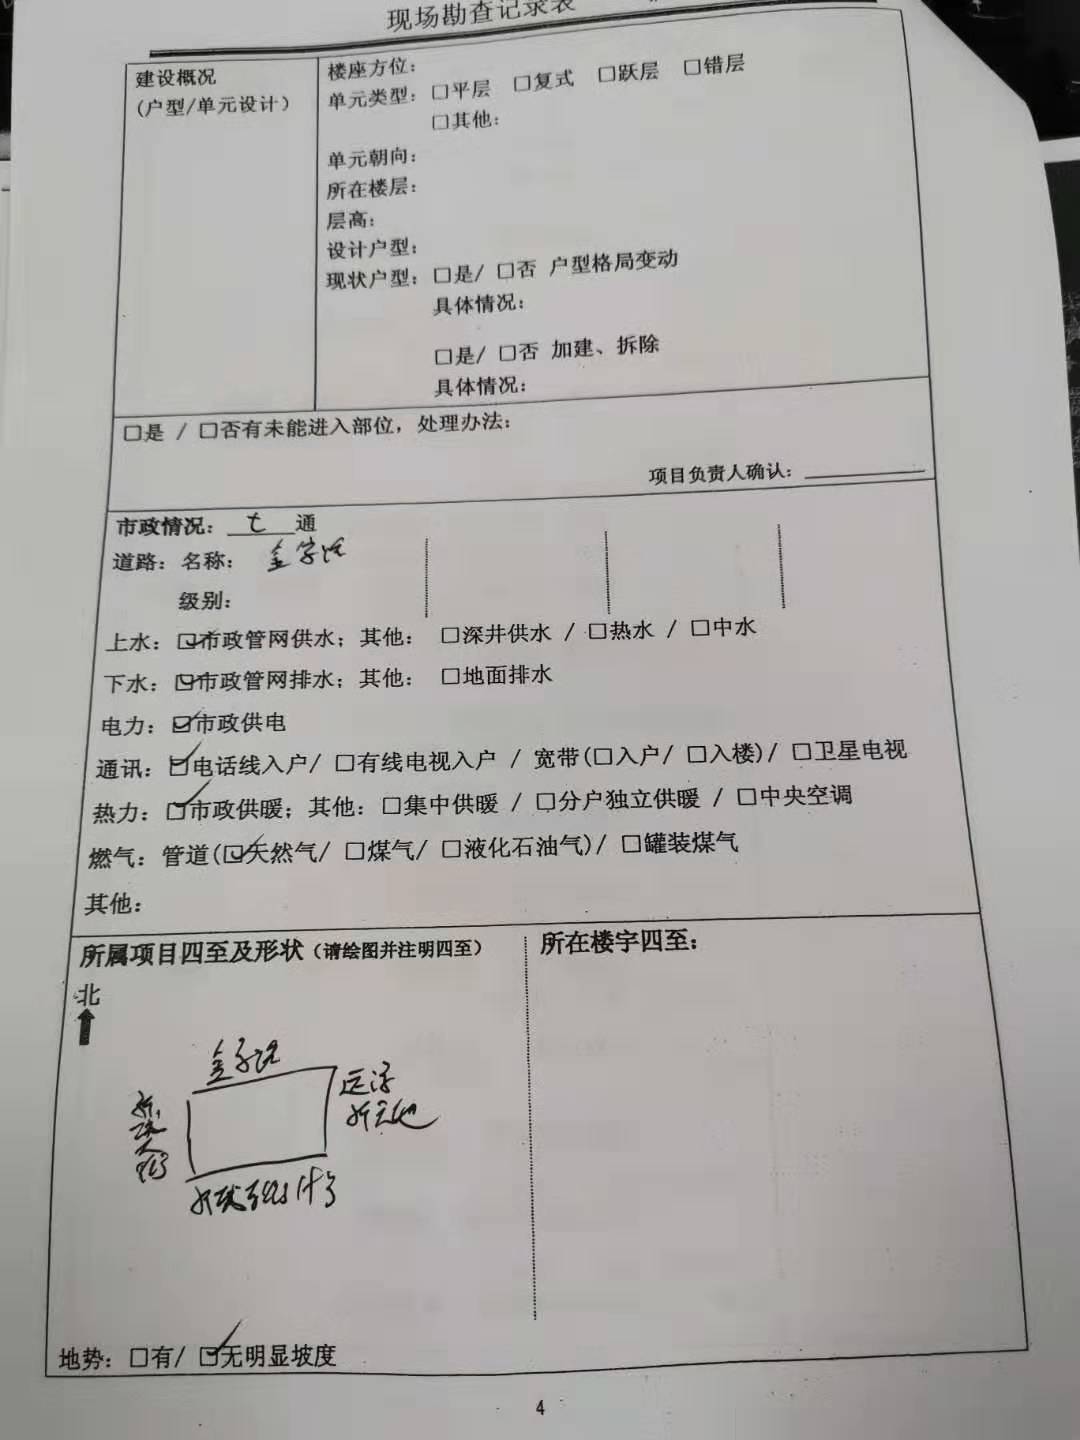 现场勘查记录表
建设概况
(户型/单元设计)
楼座方位:
单元类型: □平层 □复式 □跃层 □错层
□其他:
单元朝向:
所在楼层:
层高:
设计户型:
现状户型: □是/ □否 户型格局变动
具体情况:
□是/ □否 加建、拆除
具体情况:
□是 / □否有未能进入部位, 处理办法:
项目负责人确认:
市政情况: 七 通
道路: 名称: 金
级别:
上水: ☑市政管网供水; 其他: □深井供水 / □热水 / □中水
下水: ☑市政管网排水; 其他: □地面排水
电力: ☑市政供电
通讯: ☑电话线入户/ □有线电视入户 / 宽带(□入户/ □入楼)/ □卫星电视
热力: ☑市政供暖; 其他: □集中供暖 / □分户独立供暖 / □中央空调
燃气: 管道(☑天然气/ □煤气/ □液化石油气)/ □罐装煤气
其他:
所属项目四至及形状 (请绘图并注明四至)
所在楼宇四至:
北
地势: □有/ ☑无明显坡度
4